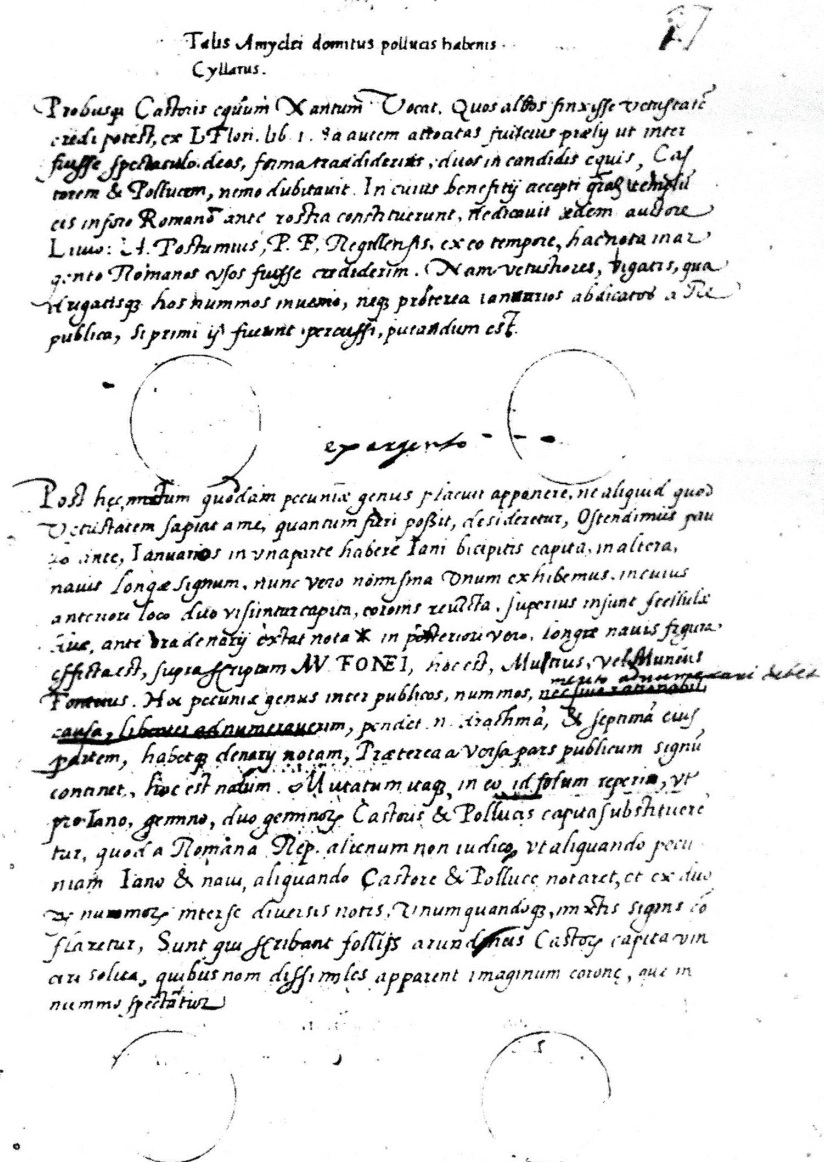 27
Talis Amyclei domitus pollucis habenis
Cyllarus.
Probusq; Castoris equum Xantum Vocat. Quos albos finxisse vetustatē
credi potest, ex L. Flori. lib. 1. Ea autem attocitas fuit cuius prælij ut inter
fuisse spectaculo deos, fama tradiderint, duos in candidis equis, Cas
torem & Pollucem, nemo dubitavit. In cuius benefitij accepti templū
eis in foro Romano ante rostra constituerunt, dedicavit ædem auctore
Livio: A. Postumius, P. F. Regillensis, ex eo tempore, hac nota in ar
gento Romanos usos fuisse crediderim. Nam vetustiores, bigatis, qua
drigatisq; hos nummos invenio, neq; propterea ianuarios abdicatos a Re
publica, si primi ij fuerunt percussi, putandum est.
ex argento
Post hęc, mistum quoddam pecuniæ genus placuit apponere, ne aliquid quod
Vetustatem sapiat a me, quantum fieri possit, desideretur, Ostendimus pau
lo ante, Ianuarios in una parte habere Iani bicipitis capita, in altera,
navis longæ signum, nunc vero nomisma Vnum exhibemus, in cuius
anteriori loco duo visuntur capita, coronis revicta, superius insunt stellulæ
duæ, ante ora denarij extat nota X in posteriori vero, longæ navis figura
efficta est, supra scriptum MV FONEI, hoc est, Mutius, vel Muneus
Fonteius. Hoc pecuniæ genus inter publicos, nummos, nec sine rationabili
merito adnumerari debet
causa, libenter adnumeraverim, pendet n. drachmā, & septimā eius
partem, habetq; denarij notam, Præterea aversa pars publicum signū
continet, hoc est navim. Mutatum itaq; in eo id solum reperio, ut
pro Iano, gemino, duo geminorꝫ Castoris & Pollucis capita substituerē
tur, quod a Romana Rep. alienum non iudico, vt aliquando pecu
niam Iano & navi, aliquando Castore & Polluce notaret, et ex duo
bꝫ nummorꝫ inter se diversis notis, Vnum quandoq; mixtis signis cō
flaretur, Sunt qui scribant follijs arundineis Castorꝫ capita vin
ciri solita, quibus non dissimiles apparent imaginum coronę, que in
nummo spectantur